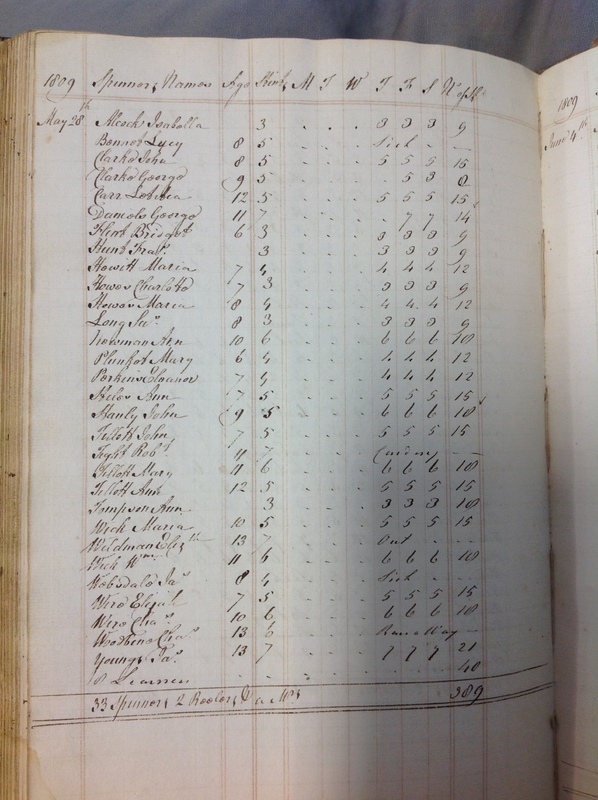 1809 Spinners Names Age Stint M T W T F S No of Sks
May 28th Alcock Isabella 3 - - - 3 3 3 9
Bennet Lucy 8 5 - - - Sick - -
Clarke John 8 5 - - - 5 5 5 15
Clarke George 9 5 - - - - 5 3 8
Carr Letitia 12 5 - - - 5 5 5 15
Daniels George 11 7 - - - - 7 7 14
Flint Bridget 6 3 - - - 3 3 3 9
Hunt Fras. 3 - - - 3 3 3 9
Howitt Maria 7 4 - - - 4 4 4 12
Howes Charlotte 7 3 - - - 3 3 3 9
Howes Maria 8 4 - - - 4 4 4 12
Long Sus. 8 3 - - - 3 3 3 9
Newman Ann 10 6 - - - 6 6 6 18
Plunket Mary 6 4 - - - 4 4 4 12
Perkins Eleanor 7 4 - - - 4 4 4 12
Ann 7 5 - - - 5 5 5 15
Stanly John 9 5 - - - 6 6 6 18
Tillott John 7 5 - - - 5 5 5 15
Tight Robt. 11 7 - - -
Tillott Mary 11 6 - - - 6 6 6 18
Tillott Ann 12 5 - - - 5 5 5 15
Tompson Ann 3 - - - 3 3 3 10
Wick Maria 10 5 - - - 5 5 5 15
Wildman Elizth 13 7 - - - Out - -
Wick Wm. 11 6 - - - 6 6 6 18
Websdale Jas. 8 4 - - - Sick - -
Werd Elijah 7 5 - - - 5 5 5 15
Werd Chas. 10 6 - - - 6 6 6 18
Woodbine Chas. 13 6 - - - Run Way -
Youngs Jas. 13 7 - - - 7 7 7 21
8 Learners - - - - - - 40
33 Spinners 2 Reelers & a Mrs 389
1809
June 4th